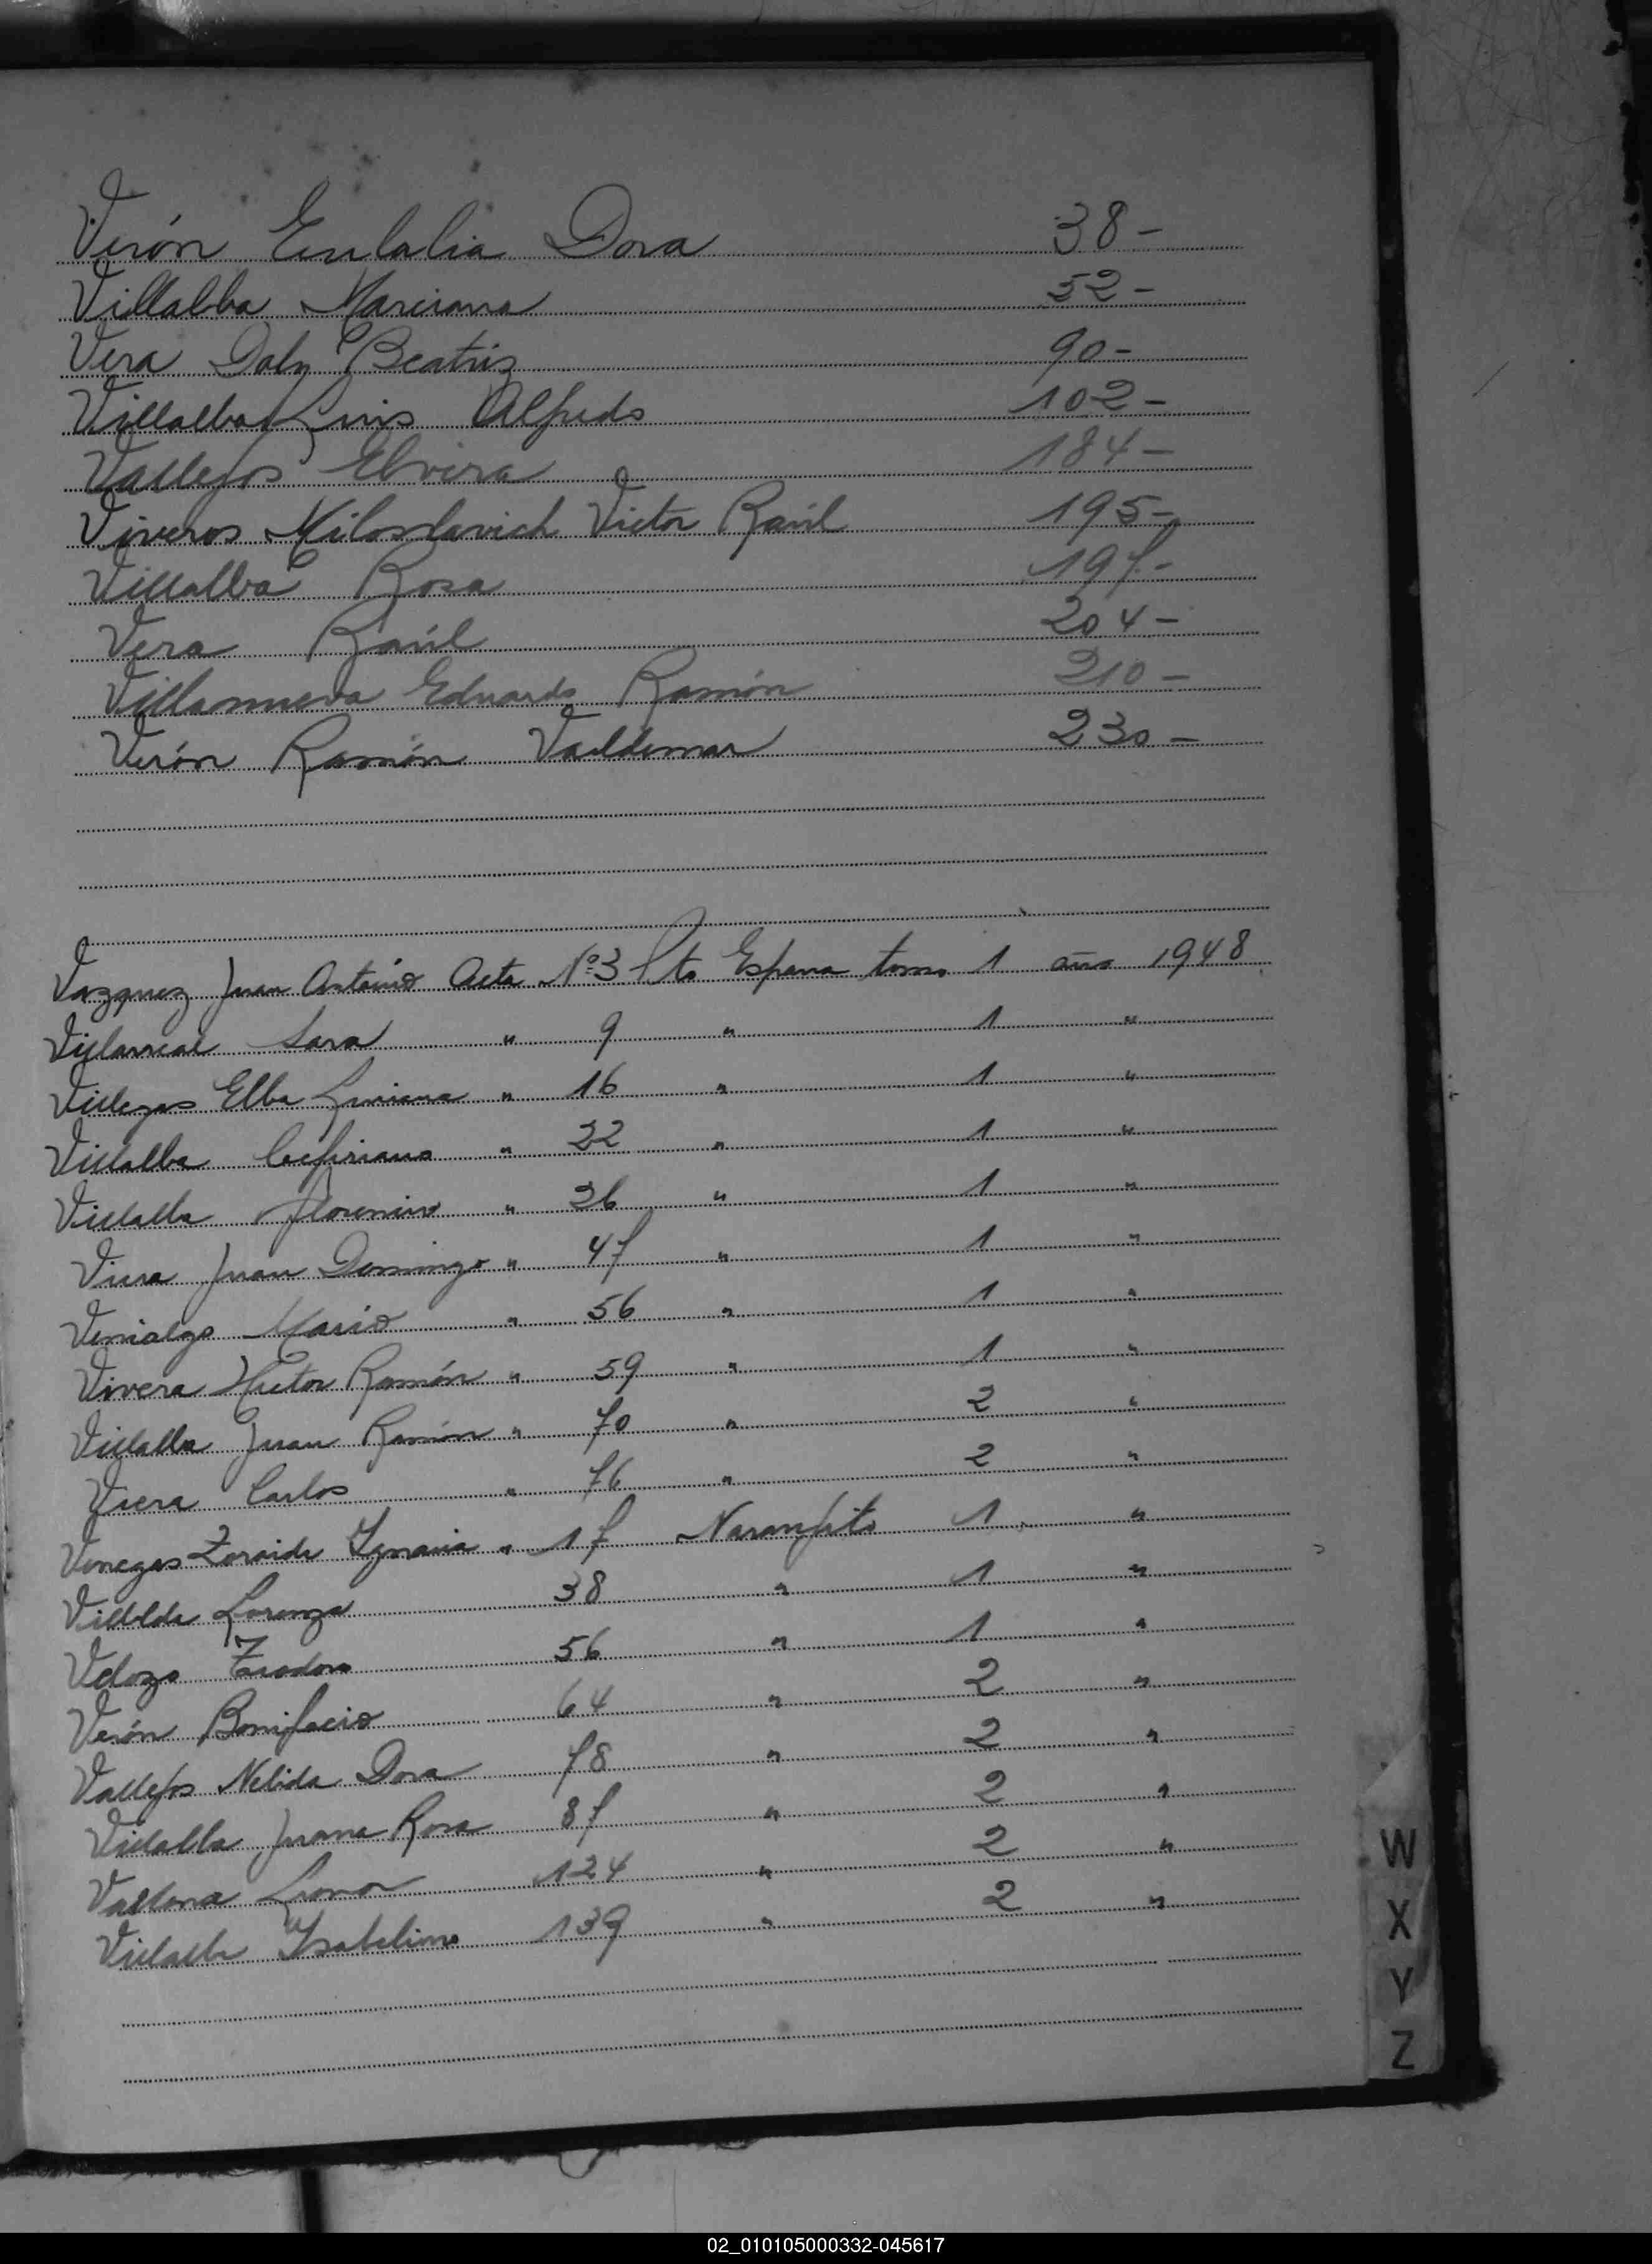 Verón Eulalia Dora 38-
Villalba Marciana 52-
Vera Daly Beatriz 90-
Villalba Luis Alfredo 102-
Vallejos Elvira 184-
Viveros Miloslavich Victor Raúl 195-
Villalba Rosa 197-
Vera Raúl 204-
Villanueva Eduardo Ramón 210-
Verón Ramón Valdemar 230-
Vazquez Juan Antonio Acta Nº 3 Pto España tomo 1 año 1948
Villarreal Sara " 9 " 1 "
Villegas Elba Liviana " 16 " 1 "
Villalba Cefiriano " 22 " 1 "
Villalba " 26 " 1 "
Viera Juan Domingo " 47 " 1 "
Venialgo Mario " 56 " 1 "
Vivera Hector Ramón " 59 " 1 "
Villalba Juan Ramón " 70 " 2 "
Viera Carlos " 76 " 2 "
Venegas Zoraida Ignacia " 17 Naranjito 1 "
Lorenza 38 " 1 "
Velozo Teodoro 56 " 1 "
Verón Bonifacio 64 " 2 "
Vallejos Nelida Dora 78 " 2 "
Villalba Juana Rosa 87 " 2 "
Leonor 124 " 2 "
Villalba Isabelino 139 " 2 "
W
X
Y
Z
02_010105000332-045617